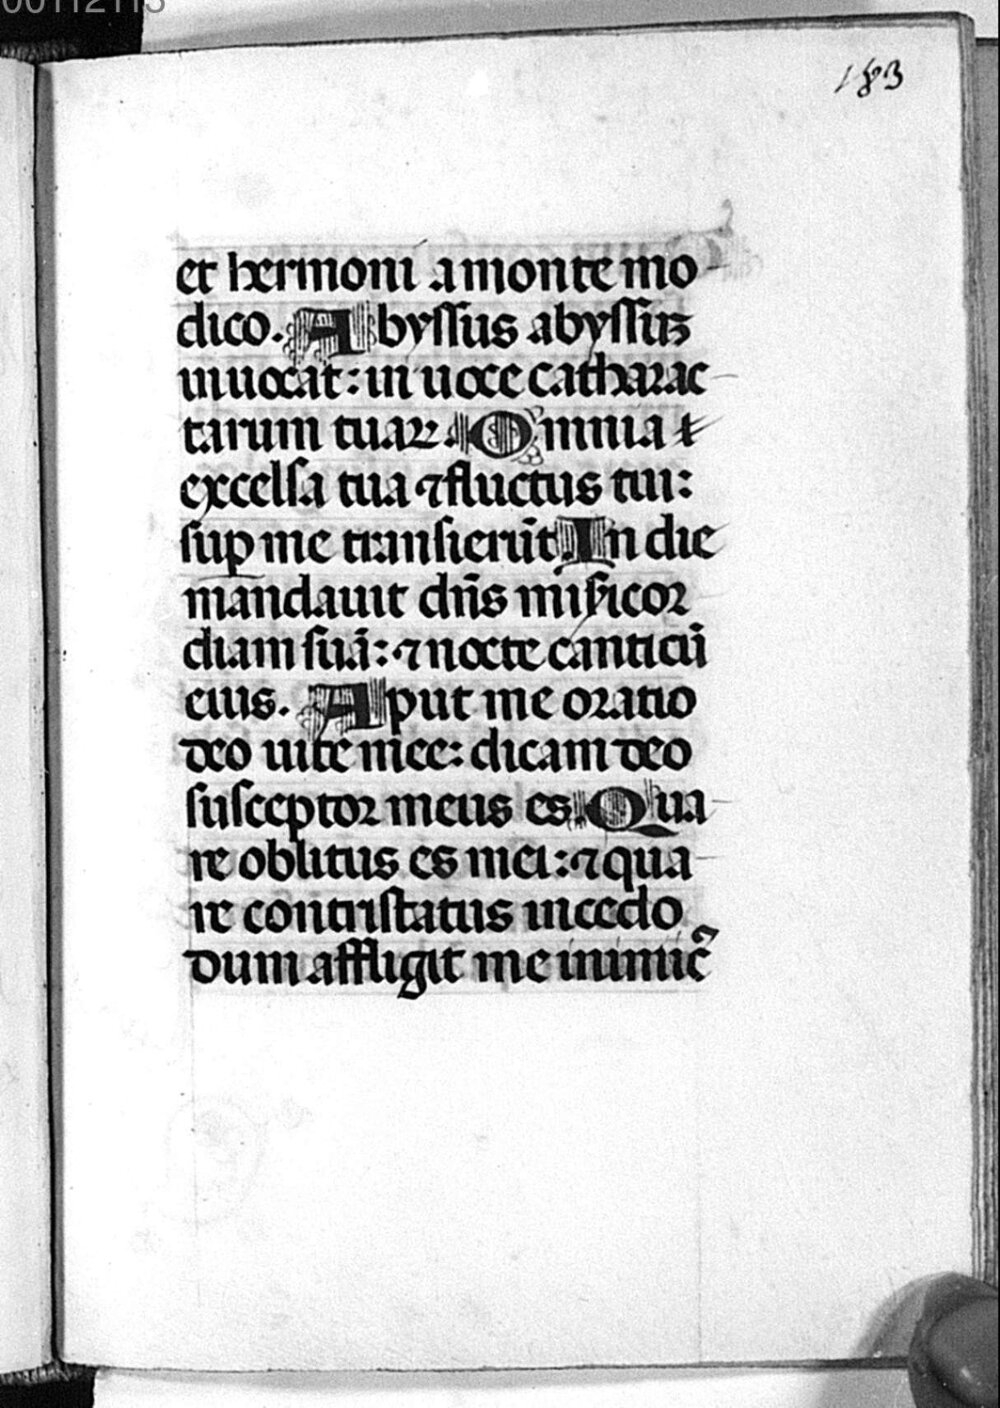 00112113
183
et hermoni a monte mo
dico. Abyssus abyssuꝫ
inuocat: in uoce catharac
tarum tuaꝝ. Omnia
excelsa tua ⁊ fluctus tui:
suꝑ me transierūt In die
mandauit dn̄s mi̅sicor
diam suā: ⁊ nocte canticū
eius. Aput me oratio
deo uite mee: dicam deo
susceptor meus es. Qua
re oblitus es mei: ⁊ qua
re contristatus incedo
dum affligit me inimic᾽